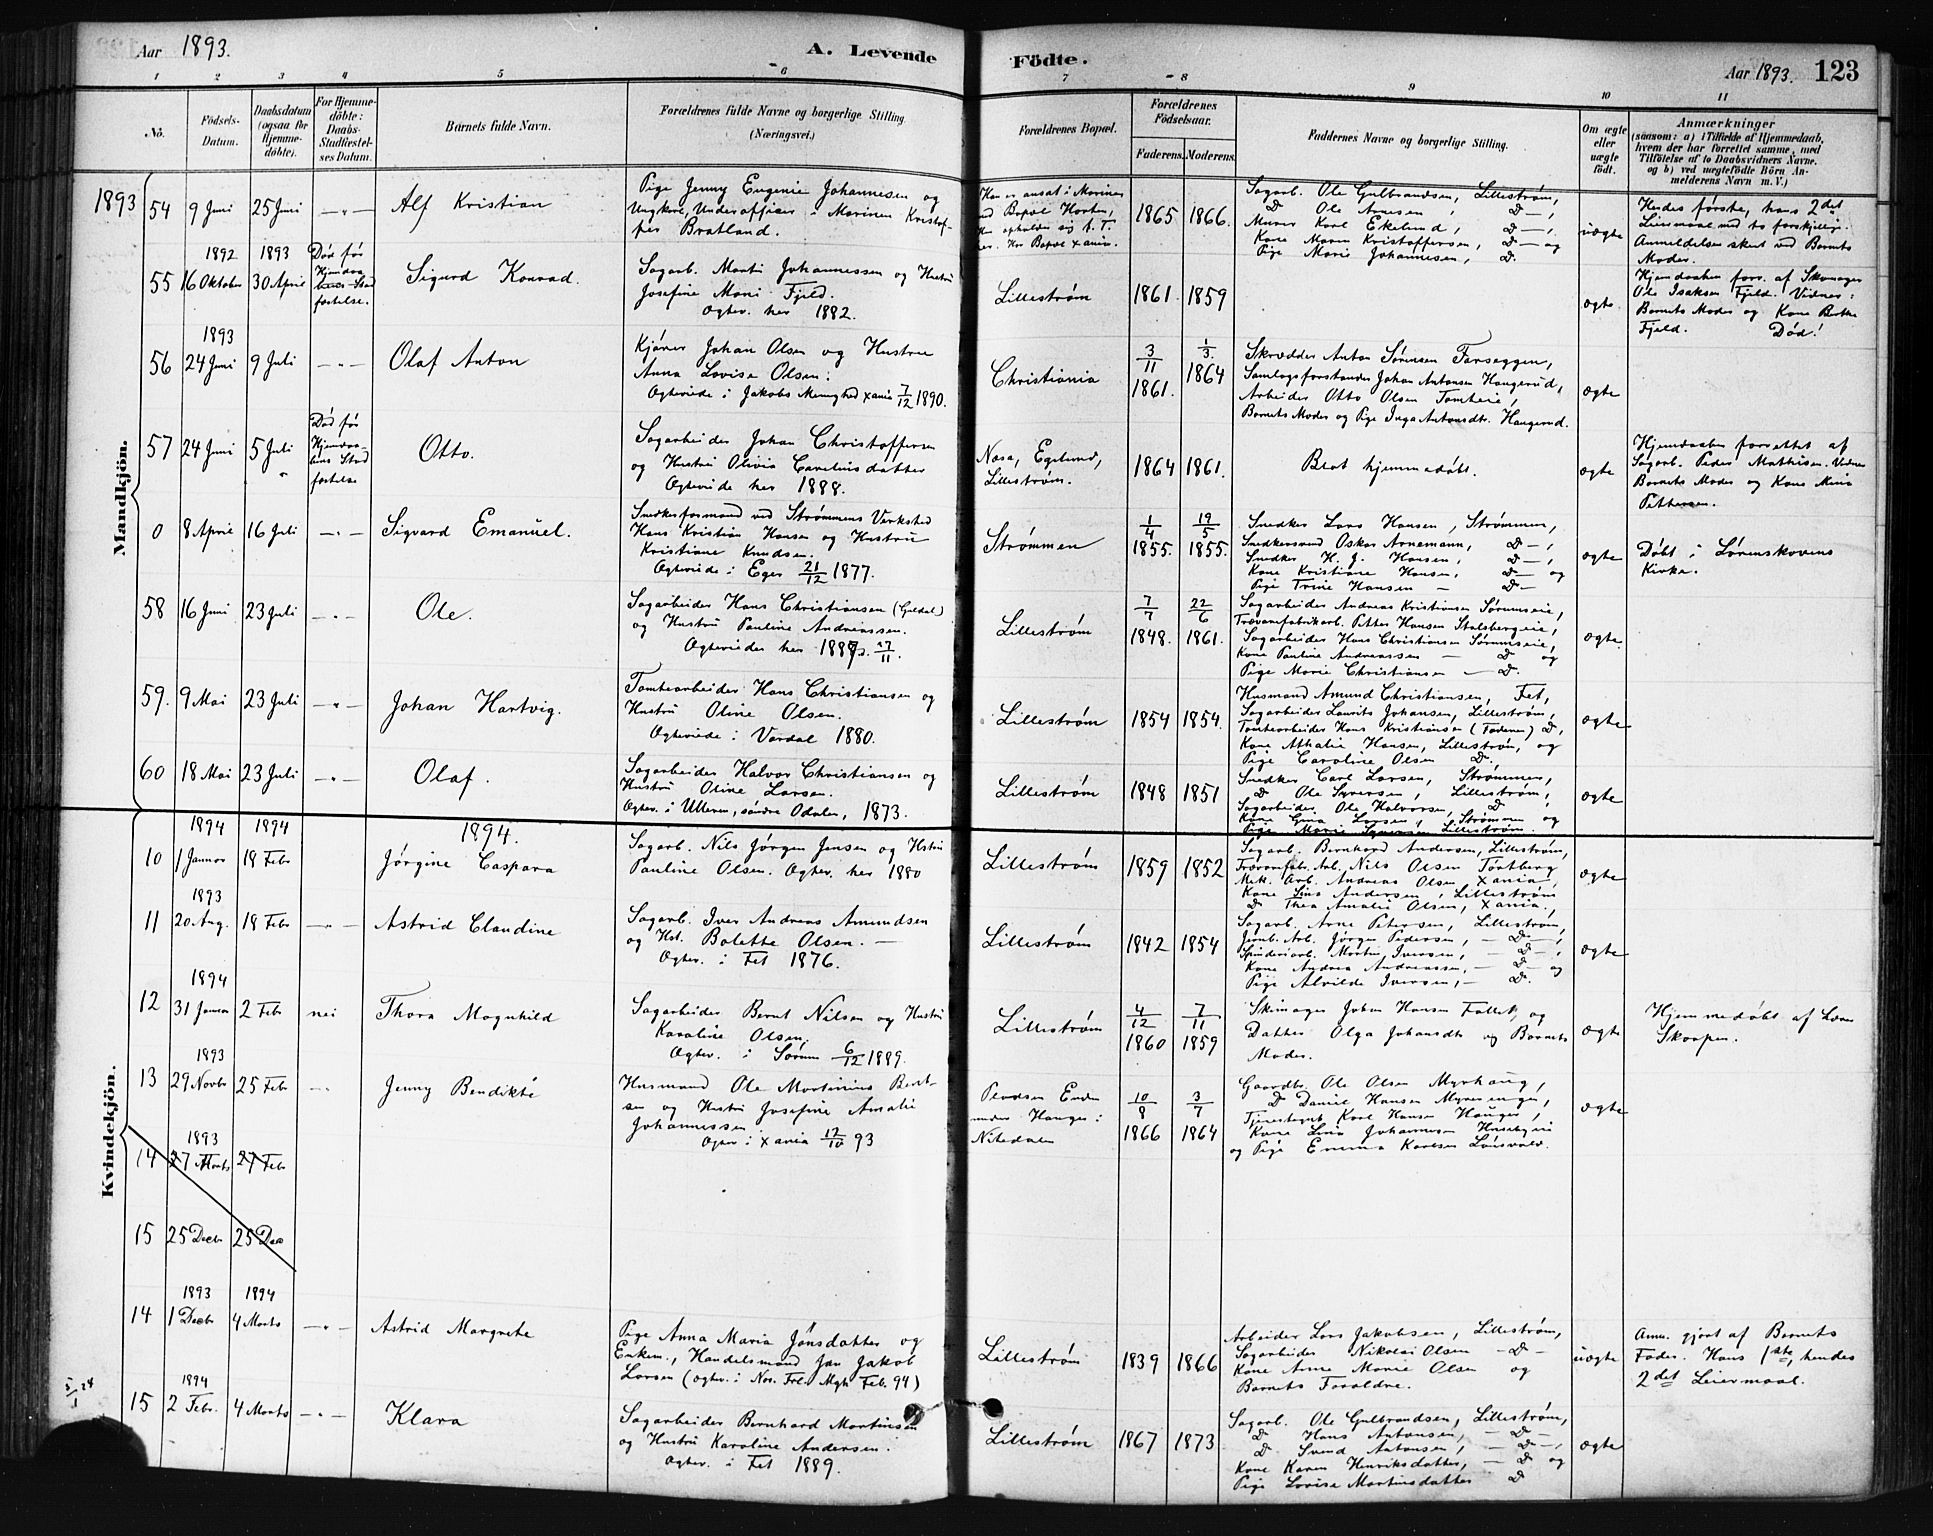 Aar 1893.
A. Levende Födte.
Aar 1893. 123
1 2 3 4 5 6 7 8 9 10 11
No.
Födsels-Datum.
Daabsdatum (ogsaa for Hjemmedöbte).
For Hjemmedöbte: Daabs-Stadfæstelses Datum.
Barnets fulde Navn.
Forældrenes fulde Navne og borgerlige Stilling. (Næringsvei.)
Forældrenes Bopæl.
Forældrenes Födselsaar.
Faderens. Moderens.
Faddernes Navne og borgerlige Stilling.
Om ægte eller uægte födt.
Anmærkninger
(saasom: a) i Tilfælde af Hjemmedaab, hvem der har forrettet samme, med Tilföielse af to Daabsvidners Navne. og b) ved uægtefödte Börn Anmelderens Navn m. V.)
Mandkjön.
1893 54 9 Juni 25 Juni Alf Kristian
Pige Jenny Eugenie Johannesen og
Ungkarl, Underofficer i Marinen Kristof-
fer Bratland.
1865 1866
Sagarb. Ole Gulbrandsen, Lilleström,
D Ole Arnesen, D
Murer Karl Ekelund, D
Kone Maren Kristoffersen, D og
Pige Marie Johannesen, D.
uægte
Hendes første, hans 2det
Leiermaal med to forskjellige.
Anmeldelsen skeet ved Barnets
Moder.
1892 1893
55 16 Oktober 30 April
Død før Hjemdaabens Stadfæstelse.
Sigurd Konrad.
Sagarb. Martin Johannessen og Hustru
Josefine Marie Fjeld.
Ægtev. her 1882.
Lilleström 1861. 1859 ægte
Hjemdaaben forr. af Skomager
Ole Isaksen Fjeld. Vidner:
Barnets Moder og Kone Berthe
Fjeld. Død!
1893
56 24 Juni 9 Juli Olaf Anton
Kjører Johan Olsen og Hustru
Anna Lovise Olsen:
Ægteviede i Jakobs Menighed Xania 7/12 1890.
Christiania 3/11 1861. 1/3. 1864
Skrædder Anton Sørensen Farseggen,
Samlagsforstander Johan Antonsen Haugerud,
Arbeider Otto Olsen Tomteeie,
Barnets Moder og Pige Inga Antonsdt. Haugerud.
ægte
57 24 Juni 5 Juli
Død før Hjemdaabens Stadfæstelse
Otto.
Sagarbeider Johan Christoffersen
og Hustru Olivia Careliusdatter
Ægteviede her 1888.
Næsa, Egelund,
Lilleström.
1864 1861.
Blot hjemmedøbt.
ægte
Hjemdaaben forrettet af
Sagarb. Peder Mathisen. Vidner
Barnets Moder og Kone Mina
Pettersen.
0 8 April 16 Juli Sigvard Emanuel.
Snedkerformand ved Strømmens Værksted
Hans Kristian Hansen og Hustru
Kristiane Knudsen.
Ægteviede i Eger 21/12 1877.
Strømmen 1/4 1855. 19/5 1855.
Snedker Lars Hansen, Strømmen,
Snedkersvend Oskar Arnemann, D
Snedker H. J. Hansen, D
Kone Kristiane Hansen, D og
Pige Trine Hansen D
ægte
Døbt i Lørenskovens
Kirke.
58 16 Juni 23 Juli Ole.
Sagarbeider Hans Christiansen (Guldal)
og Hustru Pauline Andreassen.
Ægteviede her
Lilleström 7/7 1848. 22/6 1861.
Sagarbeider Andreas Kristiansen Sørumseie,
Trævarefabrikarb. Petter Hansen Stalsbergeie,
Sagarbeider Hans Christiansen Sørumseie,
Kone Pauline Andreassen D og
Pige Marie Christiansen D.
ægte
59. 9 Mai 23 Juli Johan Hartvig.
Tomtearbeider Hans Christiansen og
Hustru Oline Olsen.
Ægteviede i Vardal 1880.
Lilleström 1854 1854.
Husmand Amund Christiansen, Fet,
Sagarbeider Laurits Johansen, Lilleström,
Tomtearbeider Hans Kristiansen (Faderen) D,
Kone Athalie Hansen, Lilleström, og
Pige Caroline Olsen D.
ægte
60 18 Mai 23 Juli Olaf.
Sagarbeider Halvor Christiansen og
Hustru Oline Larsen.
Ægtev. i Ulleren, søndre Odalen, 1873.
Lilleström 1848 1851
Snedker Carl Larsen, Strømmen,
D Ole Syversen, Lilleström,
Sagarbeider Ole Halvorsen, D
Kone Gina Larsen, Strømmen og
Pige Marie Syversen Lilleström.
ægte
Kvindekjön.
1894 1894 1894.
10 1 Januar 18 Febr Jørgine Caspara
Sagarb. Nils Jørgen Jensen og Hstru
Pauline Olsen. Ægtev. her 1880
Lilleström 1859 1852
Sagarb. Bernhard Andersen, Lilleström,
Trævarefabr. Arb. Nils Olsen Torberg
Mek. Arb. Andreas Olsen Xania,
Kone Lina Andersen, Lilleström
D Thea Amalie Olsen, Xania,
ægte
1893
11 20 Aug. 18 Febr Astrid Claudine
Sagarb. Iver Andreas Amundsen
og Hst. Bolette Olsen.
Ægtev. i Fet 1876.
Lilleström 1842 1854
Sagarb. Arne Petersen, Lilleström,
Jernb. Arb. Jørgen Pedersen, D
Spinderiarb. Martin Iversen, D
Kone Andrea Andreassen, D og
Pige Alvilde Iversen, D.
ægte
1894
12 31 Januar 2 Febr nei Thora Magnhild
Sagarbeider Bernt Nilsen og Hustru
Karoline Olsen.
Ægtev. i Sørum 6/12 1889.
Lilleström 4/12 1860 7/11 1859
Skomager Johan Hansen Fallet, og
Datter Olga Johansdt og Barnets
Moder.
ægte
Hjemmedøbt af Laura
Skarpen.
1893
13 29 Novbr 25 Febr Jenny Bendikte
Husmand Ole Martinius Bernt-
sen og Hustru Josefine Amalie
Johannessen.
Ægtev. i Xania 12/10 93
under Hauger i
Nitedalen
10/8 1866 3/7 1864
Gaardbr. Ole Olsen Myrhaug,
D Daniel Hansen Myrerenger,
Tjenestegut Karl Hansen Hauger,
Kone Lina Johannesen Husebyeie
og Pige Emma Karlsen
ægte
1893
14 27 Marts 27 Febr
15 25 Decbr 25 Dec
1893 1894
14 1 Decbr 4 Marts Astrid Margrete
Pige Anna Maria Jonsdatter og
Enkem., Handelsmand Jan Jakob
Larsen (ægtev. i Nor. Frl. Mgh Feb. 94)
Lilleström 1839 1866
Arbeider Lars Jakobsen, Lilleström,
Sagarbeider Nikolai Olsen D
Kone Anne Marie Olsen og
Barnets Forældre.
uægte
Anm. gjort af Barnets
Fader. Hans 1ste, hendes
2det Leiermaal.
5/1 24
1894
15 2 Febr. 4 Marts Klara
Sagarbeider Bernhard Martinsen
og Hustru Karoline Andersen.
Ægtev. i Fet 1889.
Lilleström 1867 1873
Sagarb. Ole Gulbrandsen, Lilleström,
D Hans Antonsen, D
D Svend Antonsen, D
Kone Karen Henriksdatter, D og
Pige Lovise Martinsdatter D
ægte